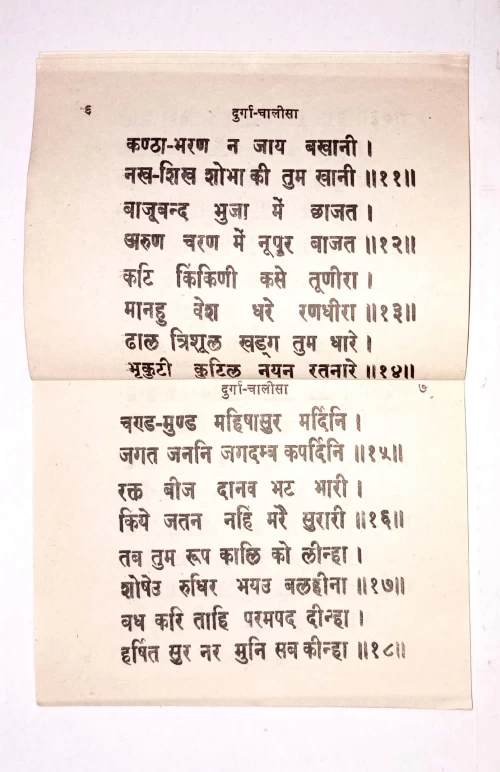 ६ दुर्गा-चालीसा
कण्ठा-भरण न जाय बखानी ।
नख-शिख शोभा की तुम खानी ॥११॥
बाजूबन्द भुजा में छाजत ।
अरुण चरण में नूपुर बाजत ॥१२॥
कटि किंकिणी कसे तूणीरा ।
मानहु वेश धरे रणधीरा ॥१३॥
ढाल त्रिशूल खड्ग तुम धारे ।
भृकुटी कुटिल नयन रतनारे ॥१४॥
दुर्गा-चालीसा ७
चण्ड-मुण्ड महिषासुर मर्दिनि ।
जगत जननि जगदम्ब कपर्दिनि ॥१५॥
रक्त बीज दानव भट भारी ।
किये जतन नहिं मरै सुरारी ॥१६॥
तब तुम रूप कालि को लीन्हा ।
शोषेउ रुधिर भयउ बलहीना ॥१७॥
वध करि ताहि परमपद दीन्हा ।
हर्षित सुर नर मुनि सब कीन्हा ॥१८॥